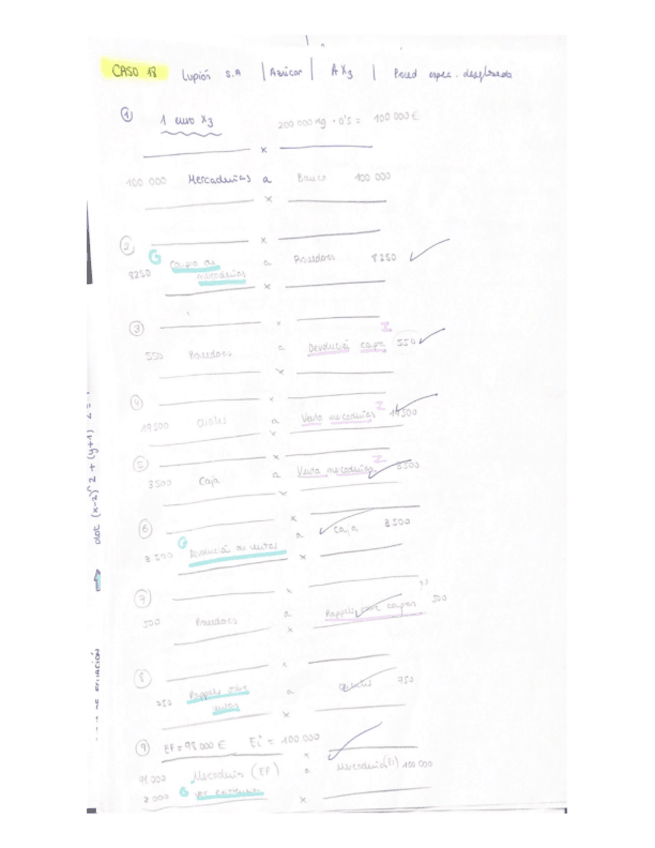 CASO 18 Lupión S.A | Azúcar | AX3 | Proced espec. desglosado
① 1 euro x3 200 000 mg · 0'5 = 100 000 €
x
100 000 Mercaderías a Banco 100 000
x
② x
G
8250 Compra de mercaderías a Proveedores 8250
x
③ x
I
550 Proveedores a Devolución compra 550
x
④ x
I
19500 Clientes a Venta mercaderías 19500
x
⑤ x
I
3500 Caja a Venta mercaderías 3500
x
⑥ x
G
3500 Devolución de ventas a Caja 3500
x
⑦ x
500 Proveedores a Rappels compras 500
x
⑧ x
750 Rappels sobre ventas a Clientes 750
x
⑨ EF = 98 000 € Ei = 100.000
x
98 000 Mercaderías (EF) a Mercaderías (Ei) 100 000
2000 G
x
(x-2)^2 + (y+1)